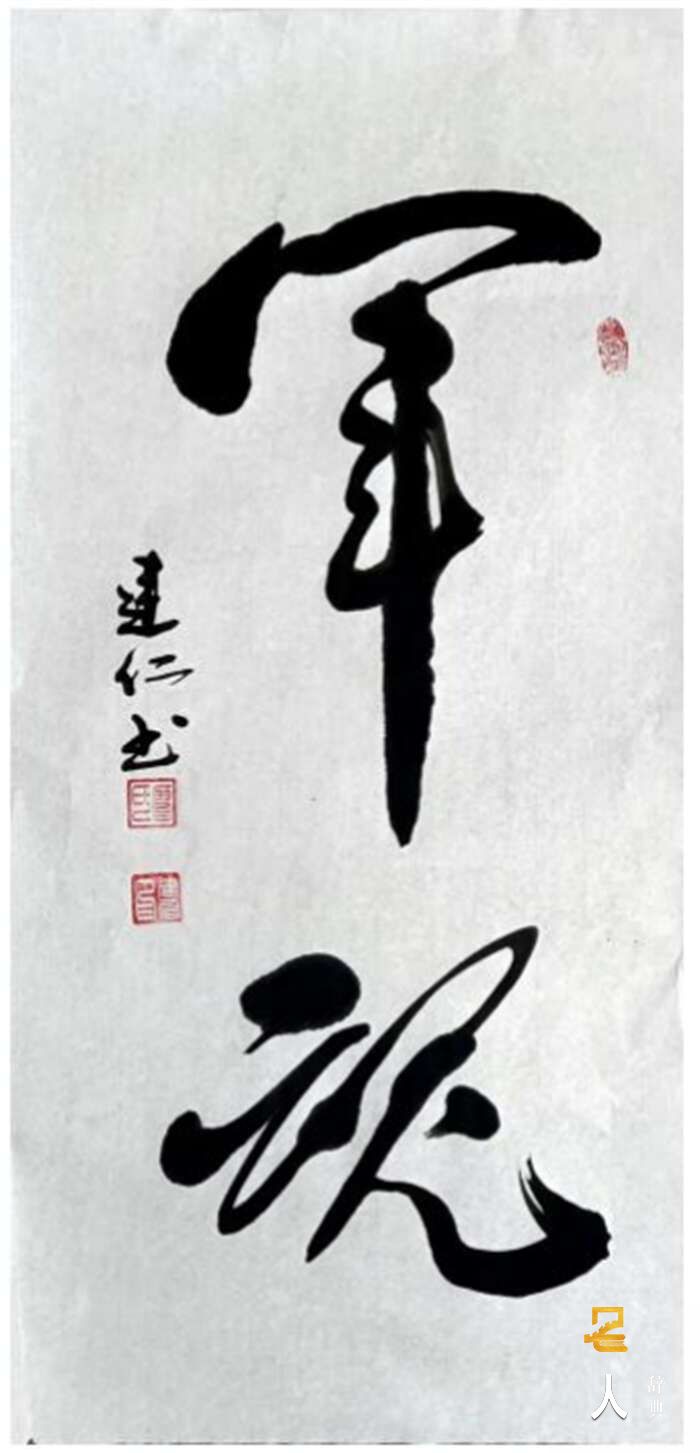 军魂
建仁书
名
人
辞典